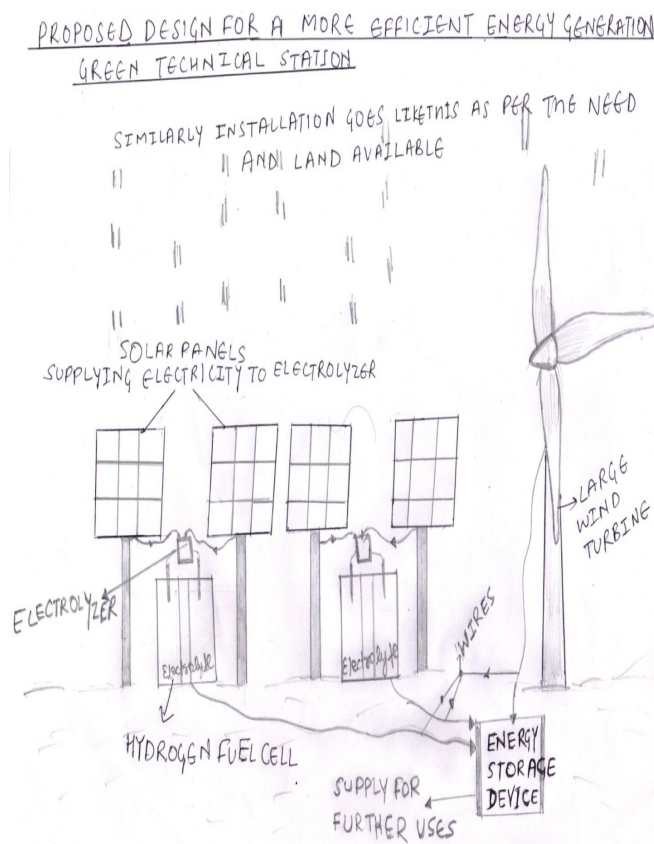 PROPOSED DESIGN FOR A MORE EFFICIENT ENERGY GENERATION
GREEN TECHNICAL STATION
SIMILARLY INSTALLATION GOES LIKE THIS AS PER THE NEED
AND LAND AVAILABLE
SOLAR PANELS
SUPPLYING ELECTRICITY TO ELECTROLYZER
LARGE
WIND
TURBINE
ELECTROLYZER
WIRES
Electrolyte
Electrolyte
HYDROGEN FUEL CELL
ENERGY
STORAGE
DEVICE
SUPPLY FOR
FURTHER USES